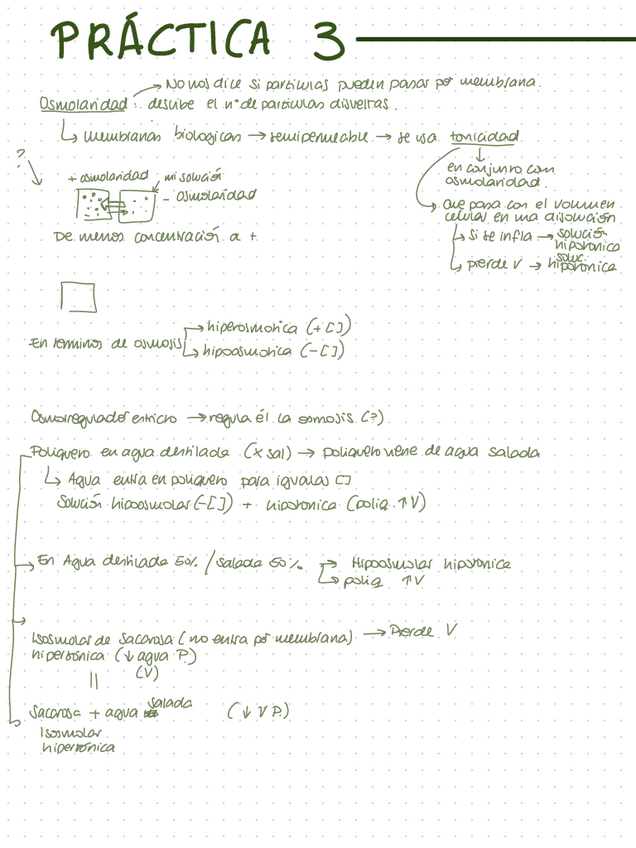 PRÁCTICA 3
→ No nos dice si partículas pueden pasar por membrana.
Osmolaridad: describe el nº de partículas disueltas.
↳ Membranas biologicas → semipermeable → se usa tonicidad
en conjunto con
osmolaridad.
que pasa con el volumen
celular en una disolución
↳ Si se infla → solución
hipotonica
↳ pierde V → soluc.
hipotonica
?
+ osmolaridad
mi solución
- osmolaridad
De menos concentración a +
En terminos de osmosis
→ hiperosmotica (+[])
↳ hipoosmotica (-[])
Osmorregulador estricto → regula él la osmosis (?)
Poliqueto en agua destilada (x sal) → poliqueto viene de agua salada
↳ Agua entra en poliqueto para igualar []
Solución hipoosmolar (-[]) + hipotonica (poliq. ↑V)
→ En Agua destilada 50% / salada 50% → Hipoosmolar hipotonica
↳ poliq ↑V
Isosmolar de Sacarosa (no entra por membrana) → Pierde V
hipertónica (↓ agua P.)
(V)
||
Sacarosa + agua salada (↓ V P.)
Isosmolar
hipertónica